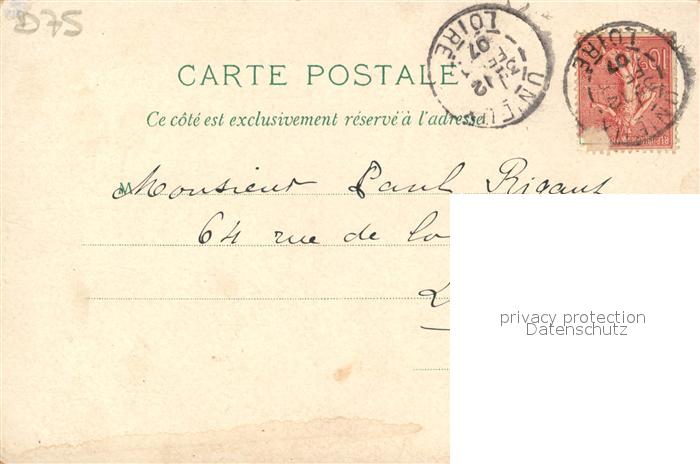 D75
CARTE POSTALE
Ce côté est exclusivement réservé à l'adresse
UNIEUX
LOIRE
07
10c
UNIEUX
LOIRE
07
M Monsieur Paul Rigaut
64 rue de la
privacy protection
Datenschutz